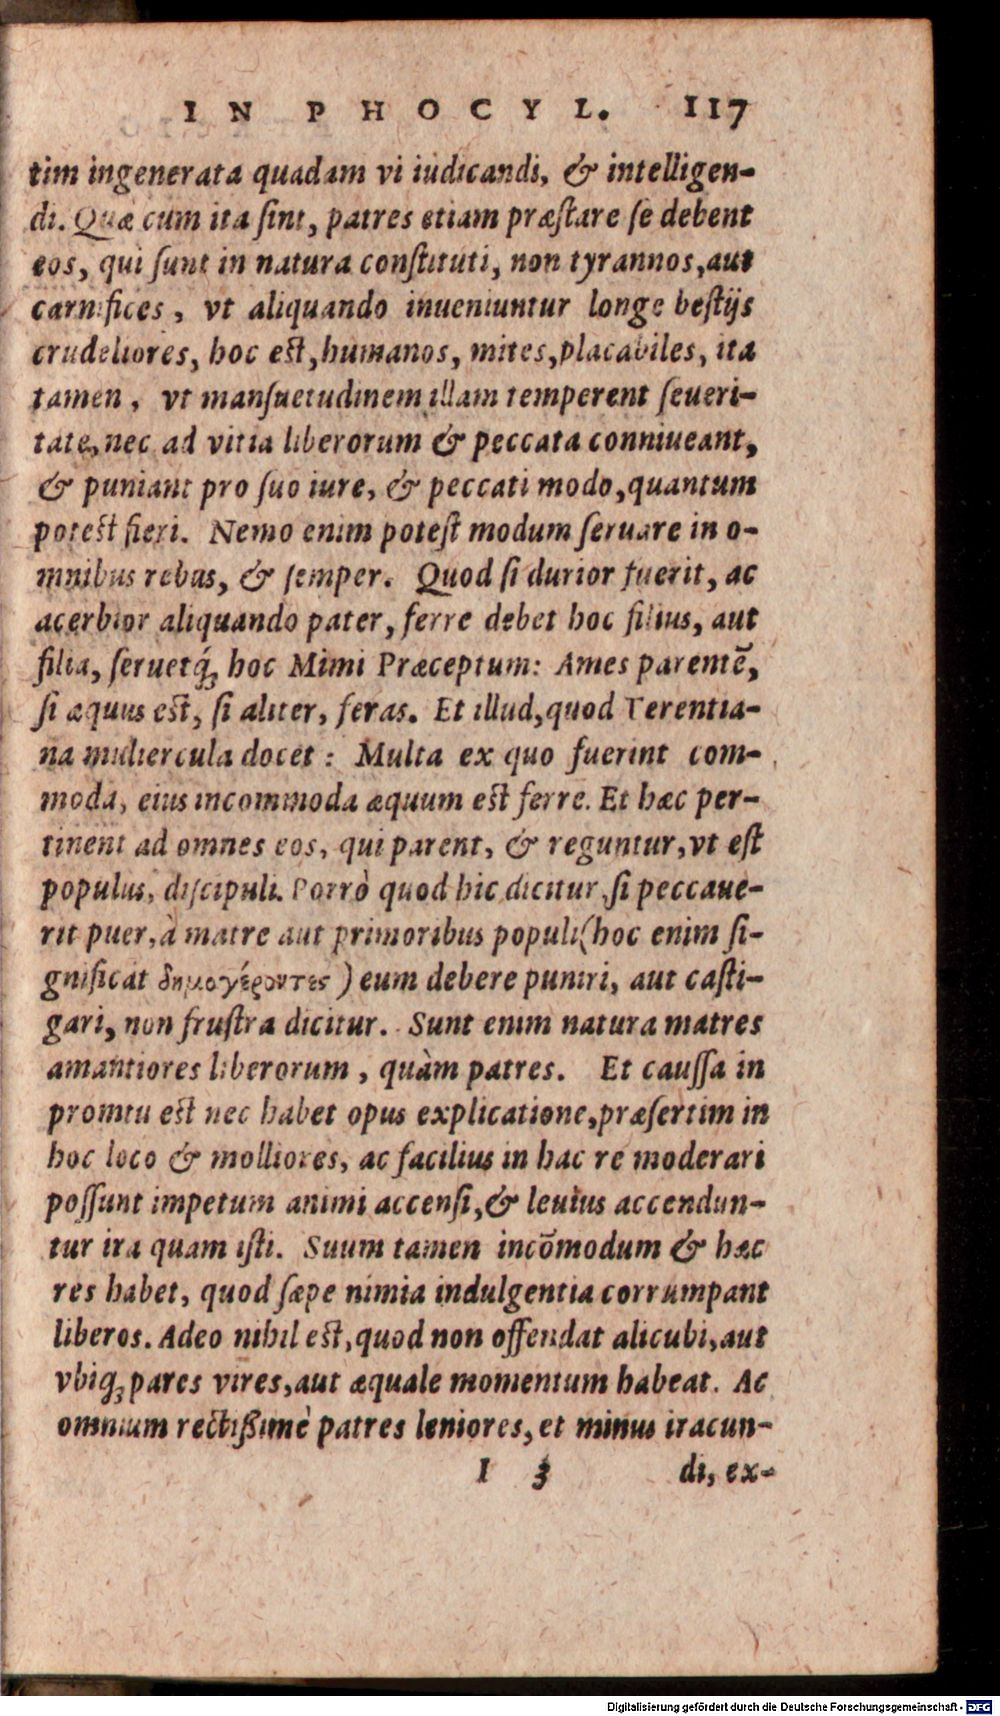 IN PHOCYL. 117
tim ingenerata quadam vi iudicandi, & intelligen-
di. Quæ cum ita ſint, patres etiam præſtare ſe debent
eos, qui ſunt in natura conſtituti, non tyrannos, aut
carnifices, vt aliquando inueniuntur longe beſtijs
crudeliores, hoc eſt, humanos, mites, placabiles, ita
tamen, vt manſuetudinem illam temperent ſeueri-
tate, nec ad vitia liberorum & peccata conniueant,
& puniant pro ſuo iure, & peccati modo, quantum
poteſt fieri. Nemo enim poteſt modum ſeruare in o-
mnibus rebus, & ſemper. Quod ſi durior fuerit, ac
acerbior aliquando pater, ferre debet hoc filius, aut
filia, ſeruetq́; hoc Mimi Præceptum: Ames parentē,
ſi æquus eſt, ſi aliter, feras. Et illud, quod Terentia-
na muliercula docet: Multa ex quo fuerint com-
moda, eius incommoda æquum eſt ferre. Et hæc per-
tinent ad omnes eos, qui parent, & reguntur, vt eſt
populus, diſcipuli. Porrò quod hic dicitur, ſi peccaue-
rit puer, à matre aut primoribus populi (hoc enim ſi-
gnificat δημογέροντες) eum debere puniri, aut caſti-
gari, non fruſtra dicitur. Sunt enim natura matres
amantiores liberorum, quàm patres. Et cauſſa in
promtu eſt nec habet opus explicatione, præſertim in
hoc loco & molliores, ac facilius in hac re moderari
poſſunt impetum animi accenſi, & leuius accendun-
tur ira quam iſti. Suum tamen incōmodum & hæc
res habet, quod ſæpe nimia indulgentia corrumpant
liberos. Adeo nihil eſt, quod non offendat alicubi, aut
vbiq; pares vires, aut æquale momentum habeat. Ac
omnium rectißimè patres leniores, et minus iracun-
I 3 di, ex-
Digitalisierung gefördert durch die Deutsche Forschungsgemeinschaft - DFG